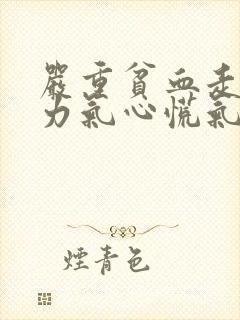 嚴重貧血走
力氣心慌氣
煙青色